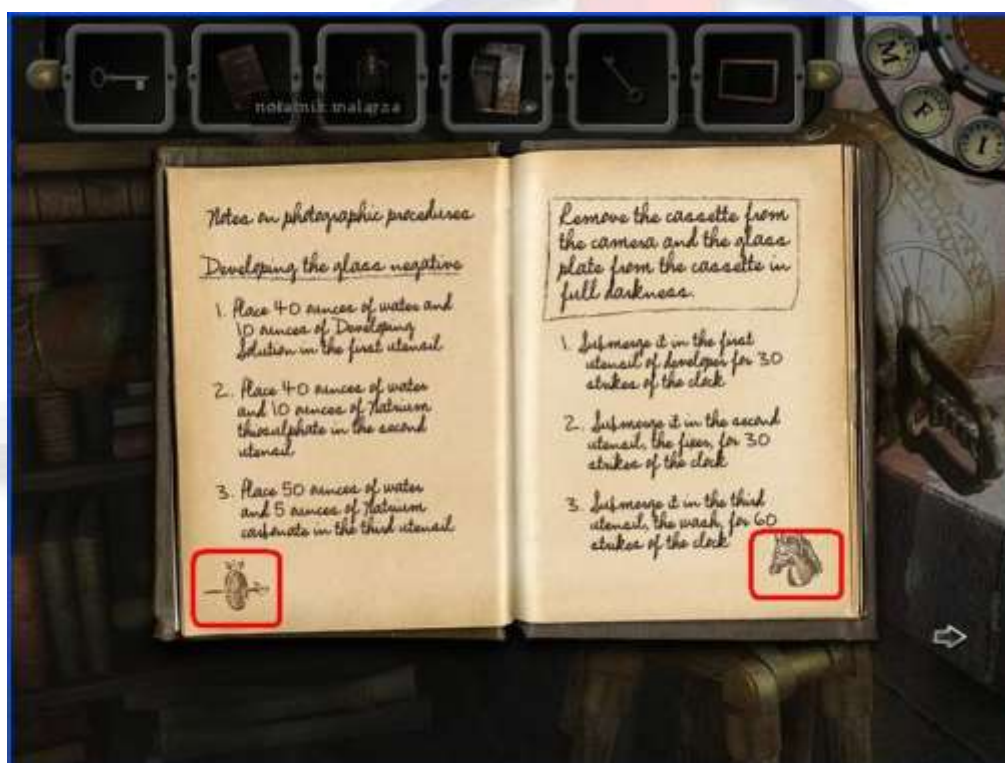 notatnik malarza
M
F
I
Notes on photographic procedures
Developing the glass negative
1. Place 40 ounces of water and
10 ounces of Developing
Solution in the first utensil
2. Place 40 ounces of water
and 10 ounces of Natrium
thiosulphate in the second
utensil
3. Place 50 ounces of water
and 5 ounces of Natrium
carbonate in the third utensil
Remove the cassette from
the camera and the glass
plate from the cassette in
full darkness.
1. Submerge it in the first
utensil of developer for 30
strikes of the clock
2. Submerge it in the second
utensil, the fixer, for 30
strikes of the clock
3. Submerge it in the third
utensil, the wash, for 60
strikes of the clock